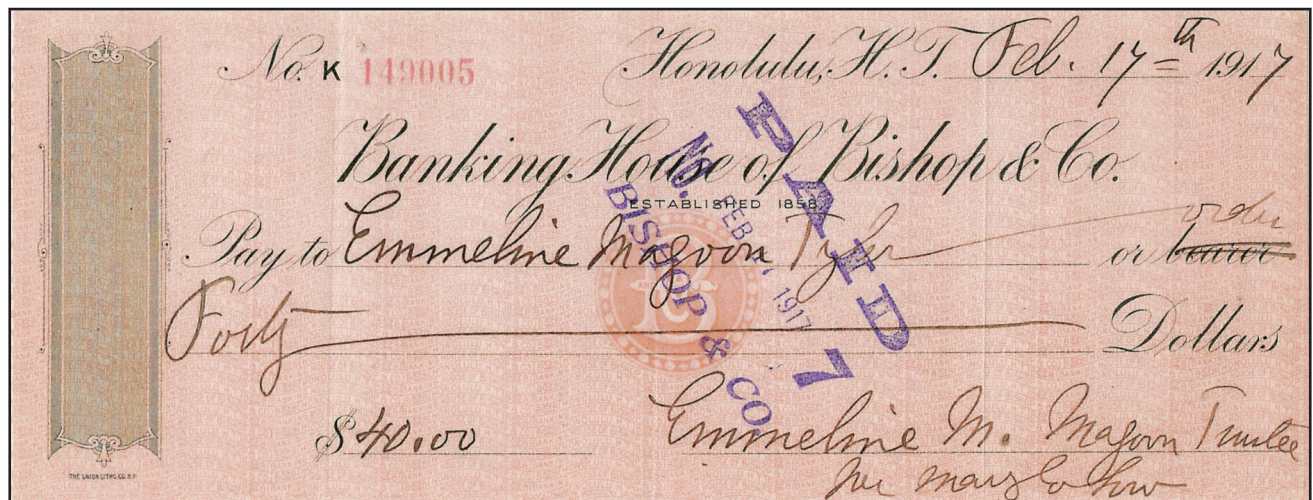 No. K 149005 Honolulu, H. T. Feb. 17th 1917
Banking House of Bishop & Co.
ESTABLISHED 1858
Pay to Emmeline Magoon Tyler or bearer order
Forty Dollars
$40.00 Emmeline M. Magoon Trustee
for Mary E. Low
PAID 7
FEB 1917
No.
BISHOP & CO.
THE UNION LITHO. CO. S.F.